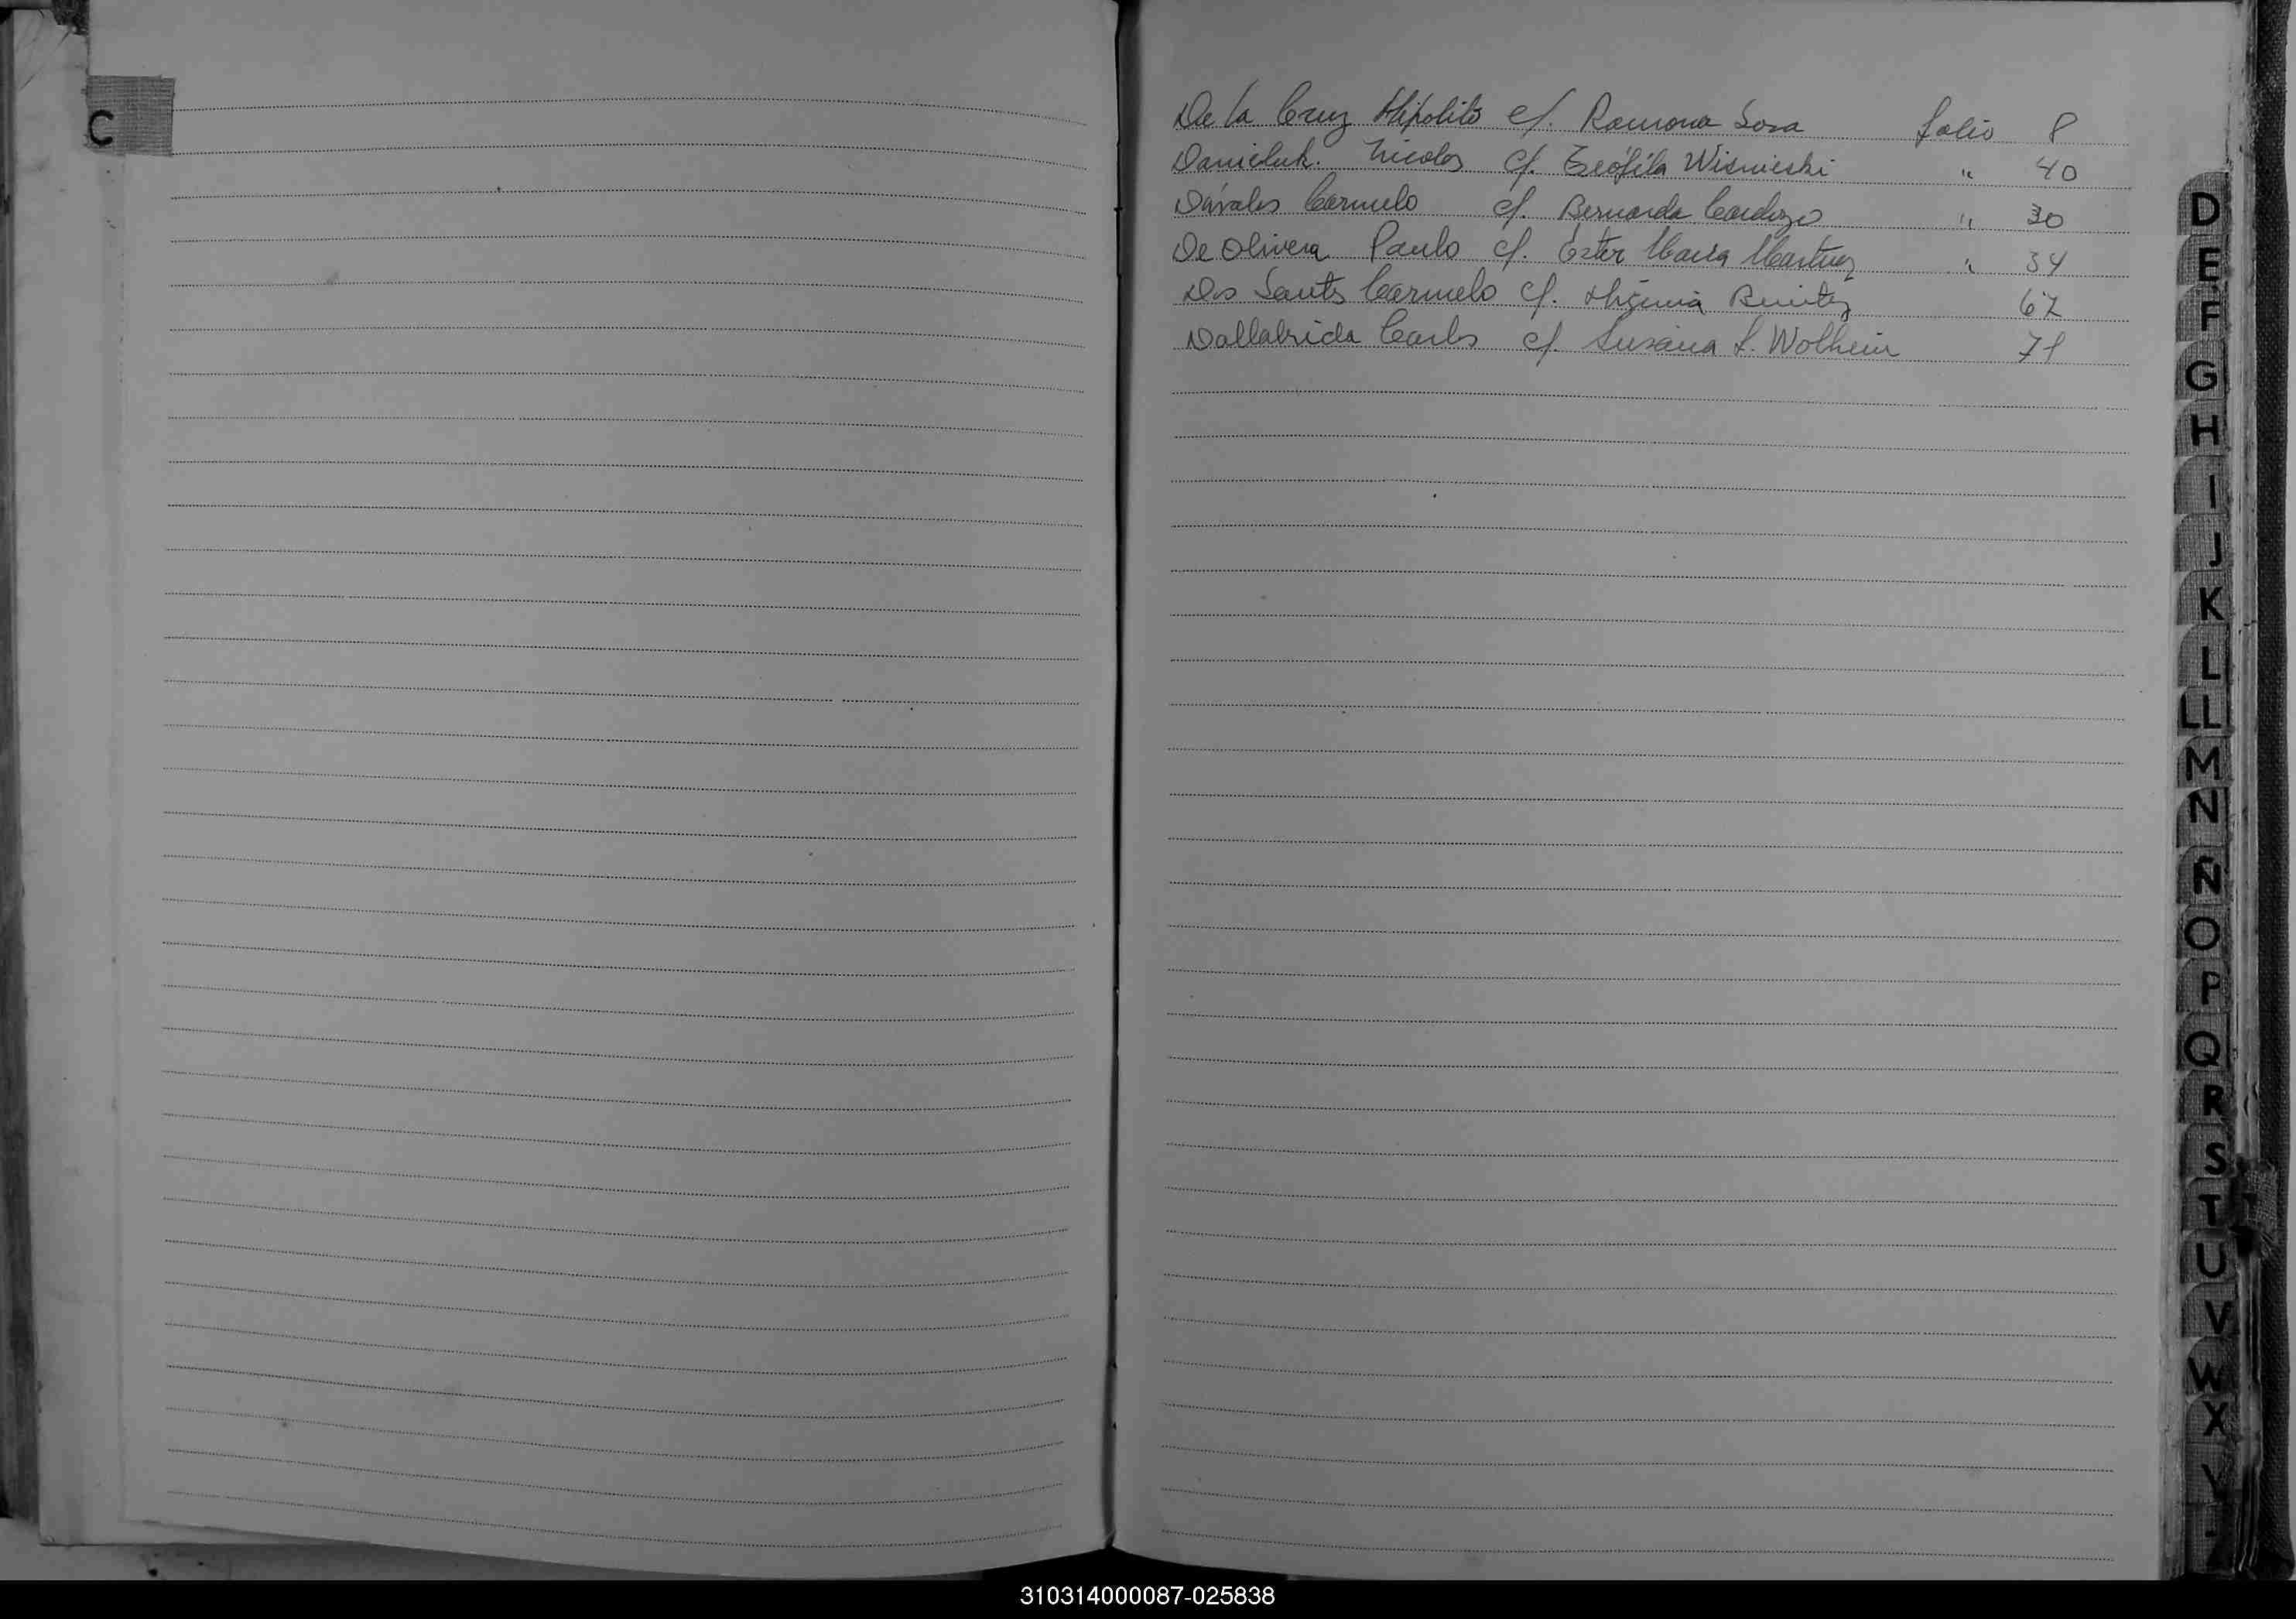 C
De la Cruz Hipolito c/. Ramona Sosa folio 8
Danieluk. Nicolas c/. Teófila Wisnieski " 40
Dávalos Carmelo c/. Bernarda Cardozo " 30
De Olivera Paulo c/. Ester María Martinez " 34
Dos Santos Carmelo c/. Higinia Benitez 67
Dallabrida Carlos c/. Susana Wolhein 71
D
E
F
G
H
I
J
K
L
LL
M
N
Ñ
O
P
Q
R
S
T
U
V
W
X
Y
310314000087-025838